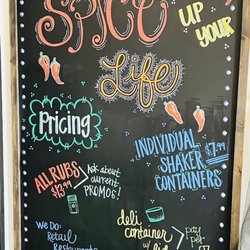 SPICE
UP
YOUR
Life
Pricing
ALL RUBS
$13.99
Ask about
current
PROMOS!
INDIVIDUAL
SHAKER
CONTAINERS
WE DO:
Retail
Restaurants
deli
container
w/ lid
pay
per